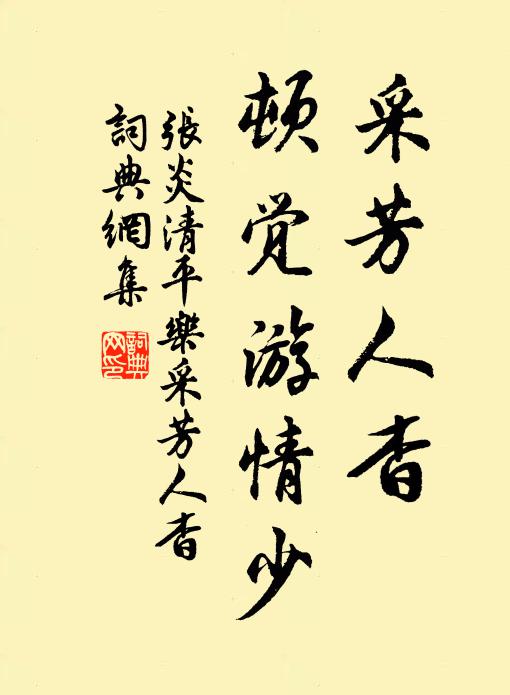 采芳人杳
頓觉游情少
張炎清平樂采芳人杳
詞典網集
詞典
网印